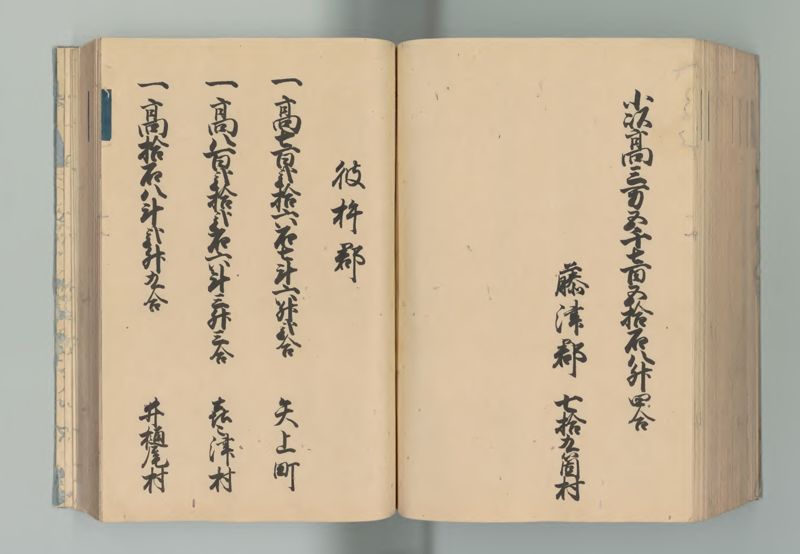 小以高三万五千七百五拾石八升四合
藤津郡 七拾九箇村
彼杵郡
一高七百弐拾六石七斗六升弐合 矢上町
一高八百弐拾弐石六斗三升三合 喜々津村
一高拾石八斗弐升九合 井樋尾村